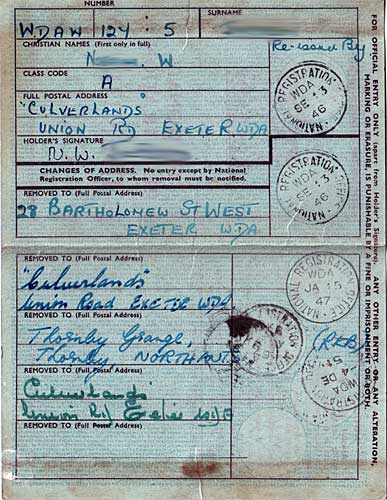 NUMBER
SURNAME
WDAW 124 : 5
CHRISTIAN NAMES (First only in full)
N W
Re-issued By
CLASS CODE
A
FULL POSTAL ADDRESS
"CULVERLANDS"
UNION RD EXETER. WDA
HOLDER'S SIGNATURE
N. W.
CHANGES OF ADDRESS. No entry except by National
Registration Officer, to whom removal must be notified.
REMOVED TO (Full Postal Address)
28 BARTHOLONEW ST WEST
EXETER WDA
REMOVED TO (Full Postal Address)
"Culverlands"
Union Road EXETER WDA
REMOVED TO (Full Postal Address)
Thornby Grange,
Thornby NORTHANTS
(REB)
REMOVED TO (Full Postal Address)
Culverlands
Union Rd
REMOVED TO (Full Postal Address)
NATIONAL REGISTRATION OFFICE
WDA
SE 13
46
NATIONAL REGISTRATION OFFICE
WDA
SE 13
46
NATIONAL REGISTRATION OFFICE
WDA
JA 15
47
WDA
4 DE
FOR OFFICIAL ENTRY ONLY (apart from Holder's Signature). ANY OTHER ENTRY OR ANY ALTERATION,
MARKING OR ERASURE, IS PUNISHABLE BY A FINE OR IMPRISONMENT OR BOTH.